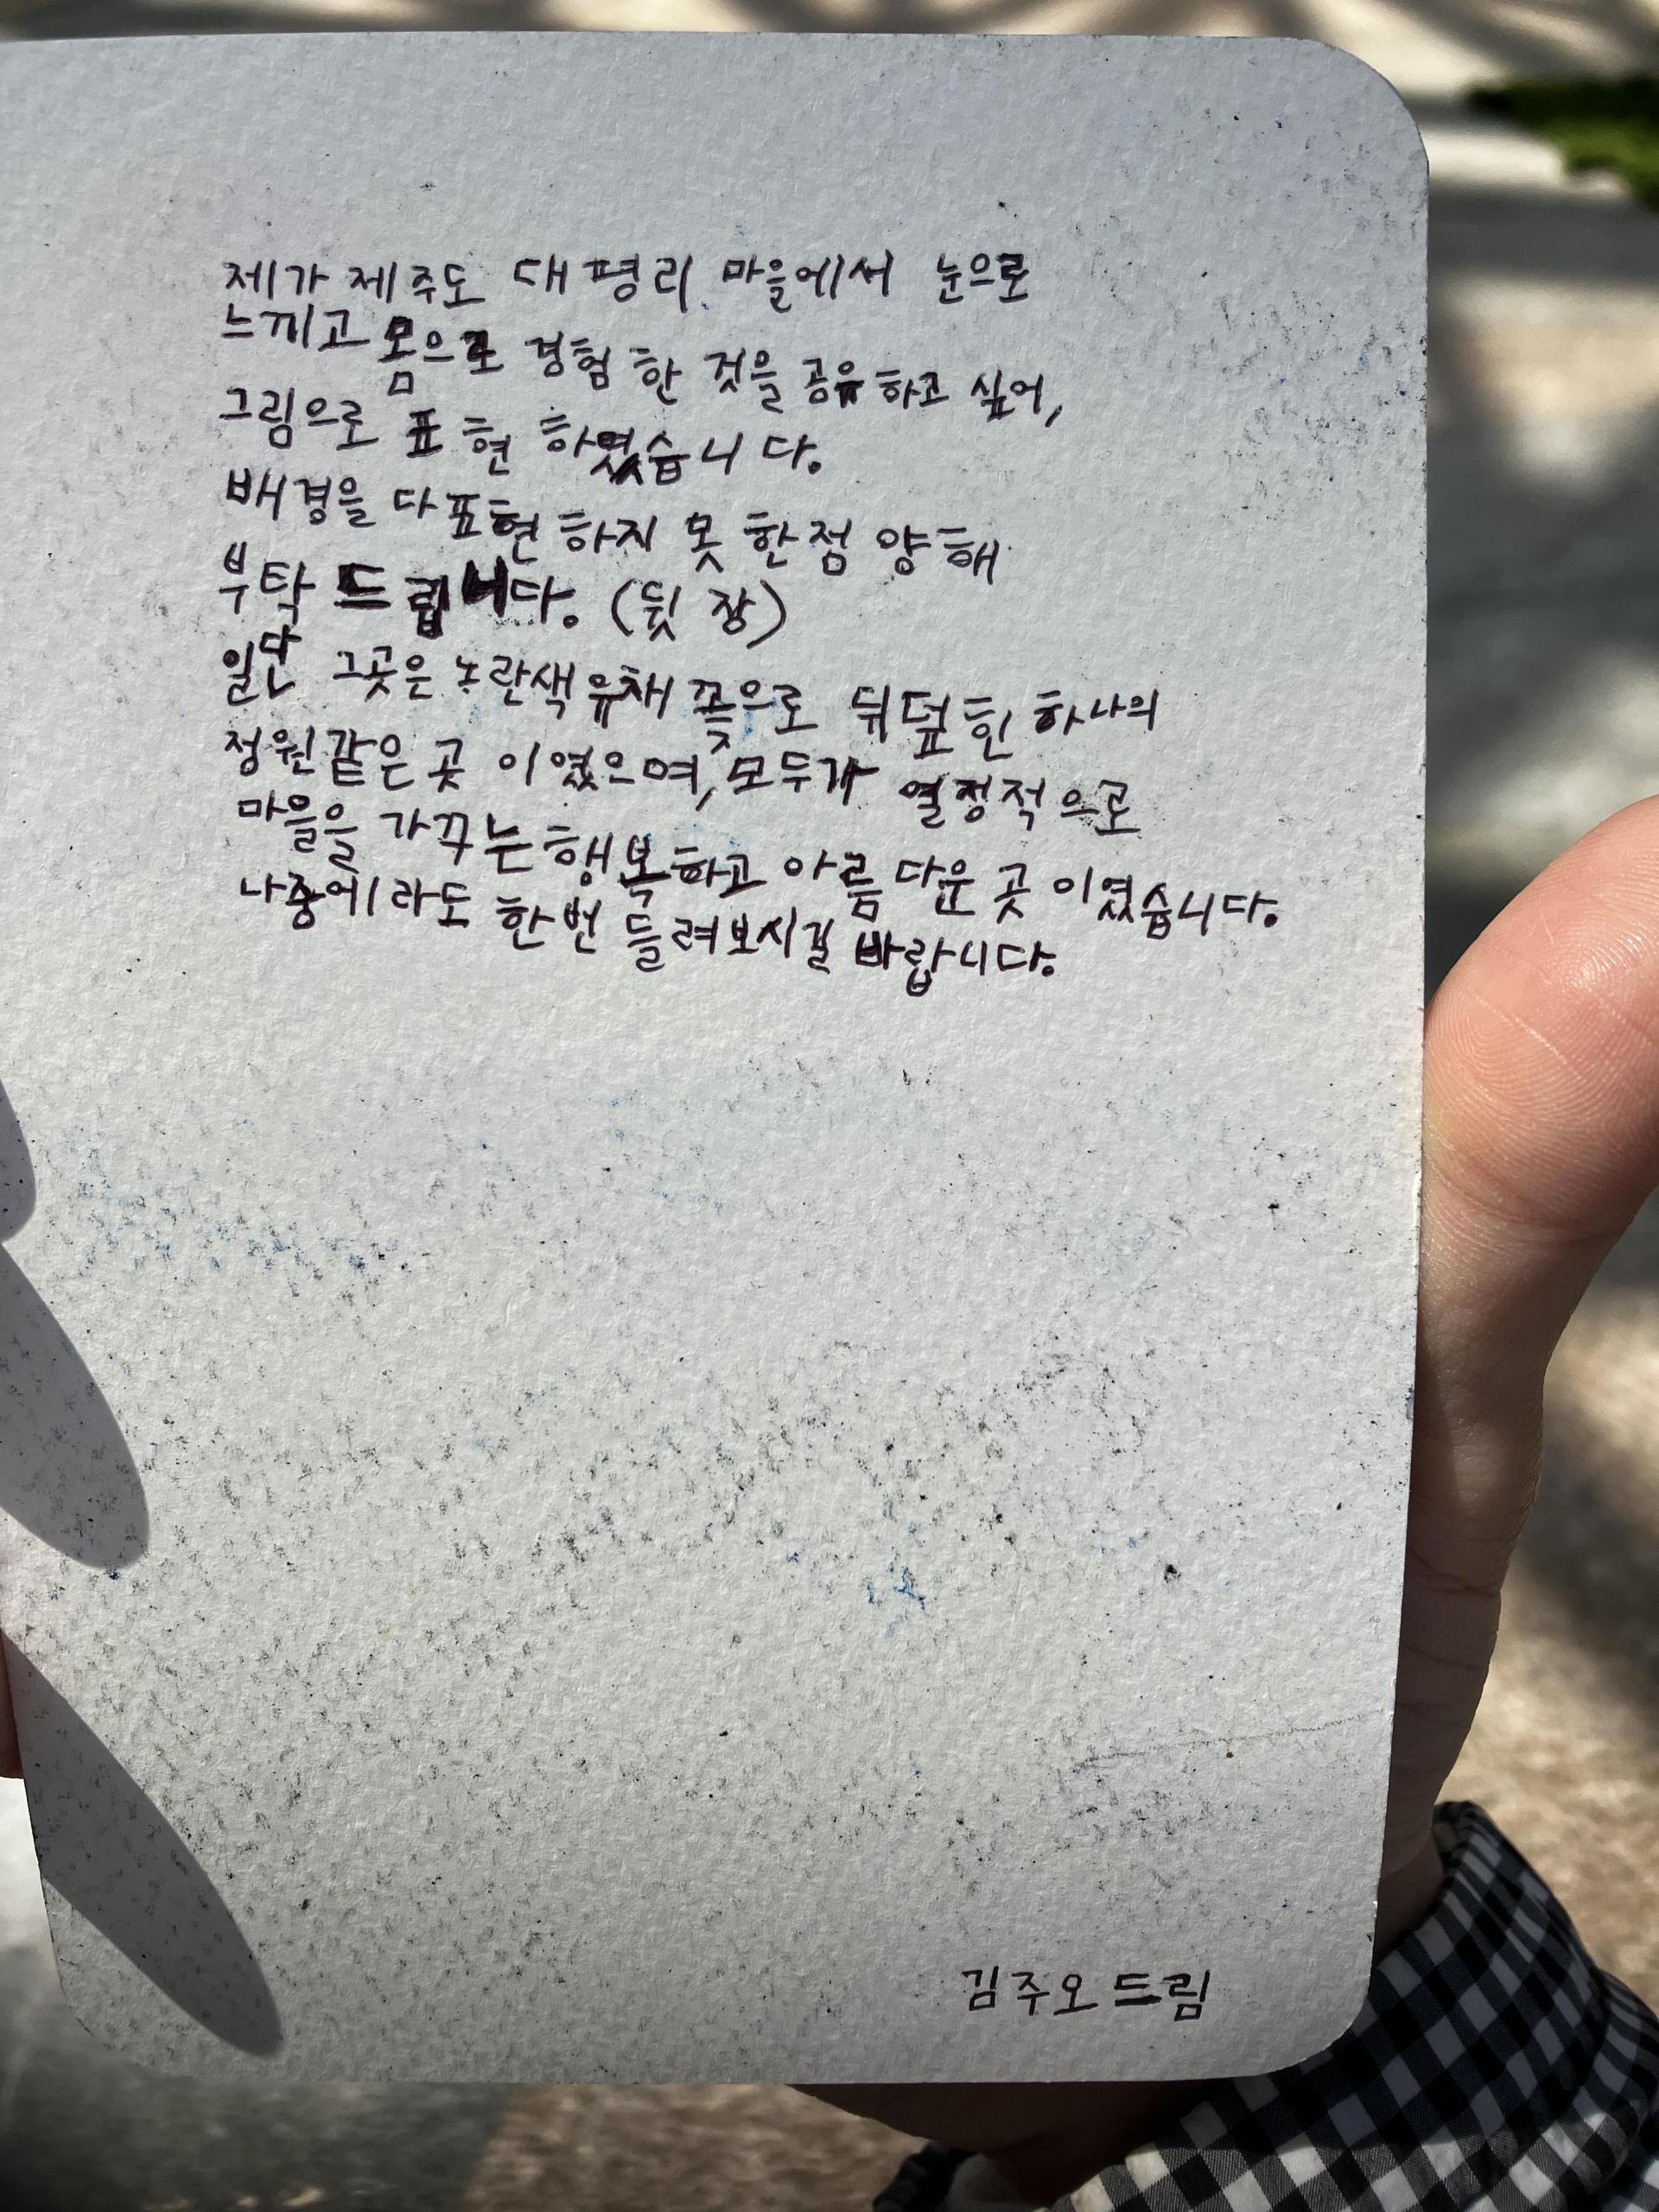 제가 제주도 대평리 마을에서 눈으로
느끼고 몸으로 경험 한 것을 공유 하고 싶어,
그림으로 표현 하였습니다.
배경을 다 표현 하지 못 한점 양해
부탁 드립니다. (뒷 장)
일단 그곳은 노란색 유채 꽃으로 뒤덮힌 하나의
정원같은 곳 이였으며, 모두가 열정적으로
마을을 가꾸는 행복하고 아름다운 곳 이였습니다.
나중에라도 한번 들려보시길 바랍니다.
김주오 드림